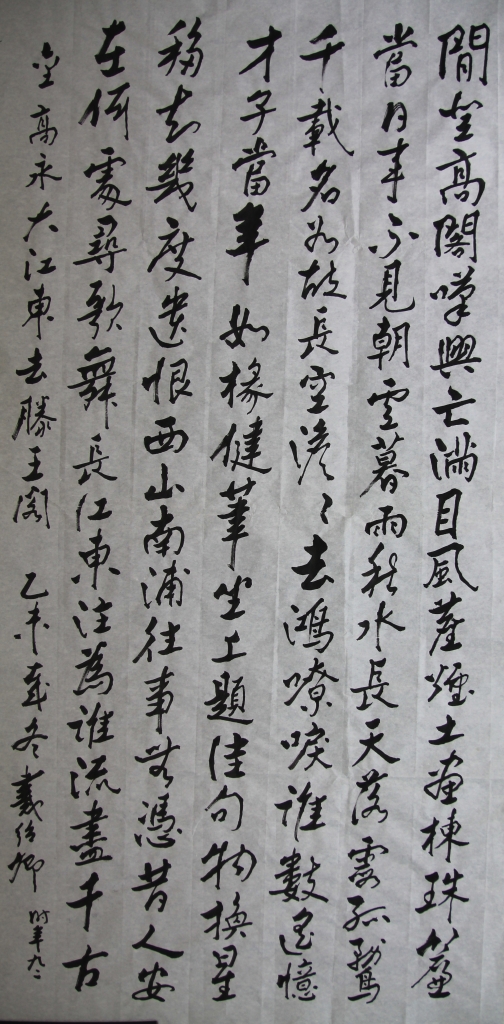 閒坐高閣嘆興亡滿目風塵煙土畫棟珠簾
當日事不見朝雲暮雨秋水長天落霞孤鶩
千載名如故長空澹々去鴻嘹唳誰數遙憶
才子當年如椽健筆坐上題佳句物換星
移知幾度遺恨西山南浦往事無憑昔人安
在何處尋歌舞長江東注為誰流盡千古
金高永大江東去滕王閣 乙未年冬義紹卿 时年九二